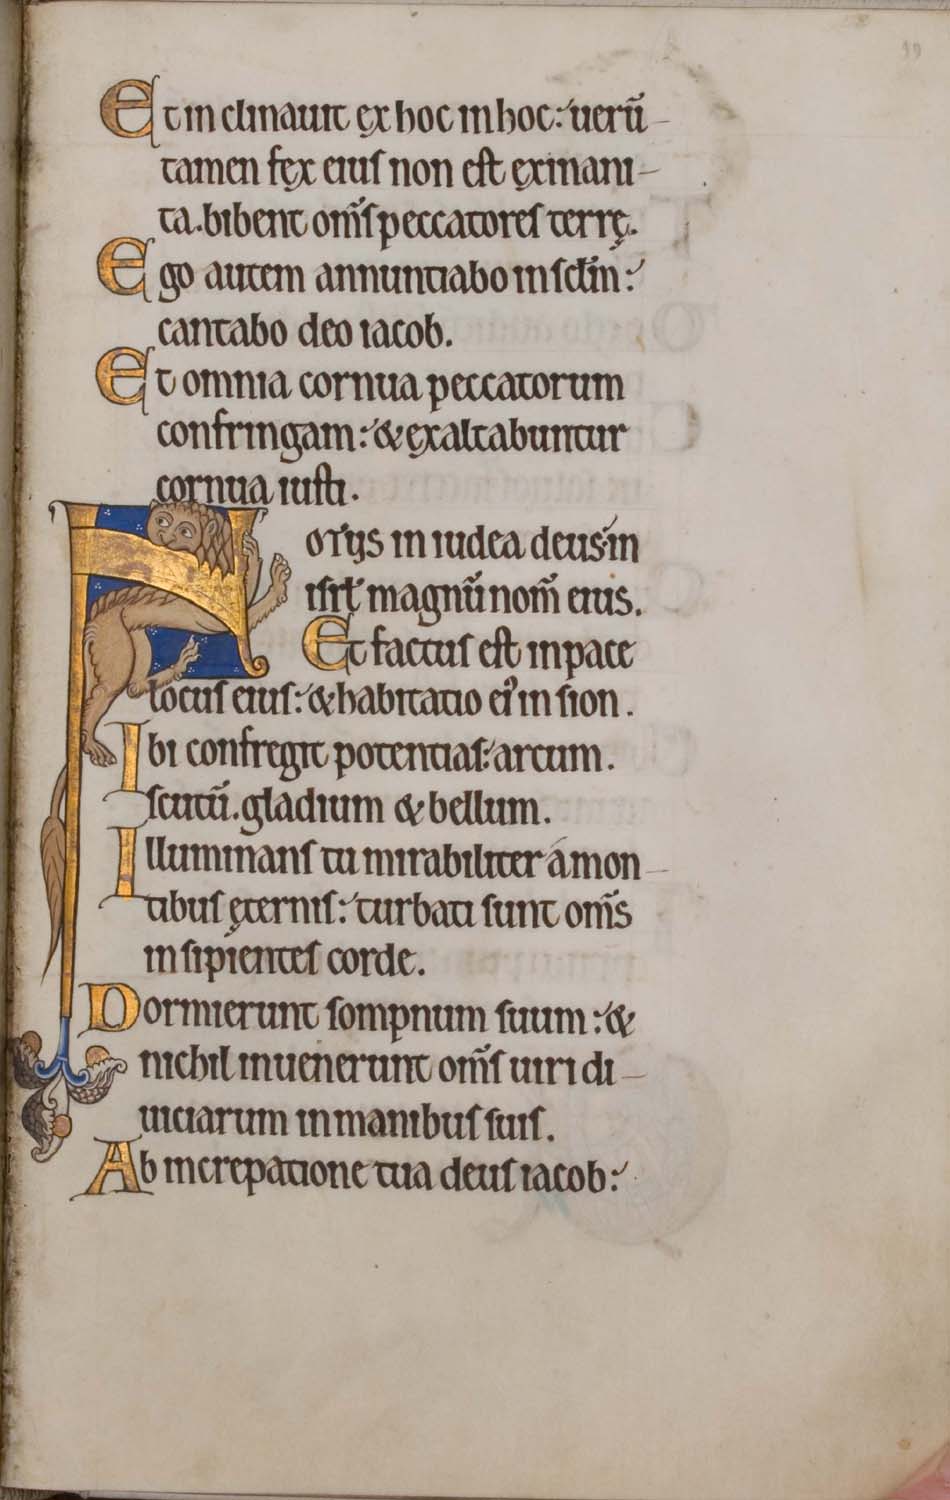 Et inclinauit ex hoc in hoc: uerū-
tamen fęx eius non est exinani-
ta. bibent om̄s peccatores terrę.
Ego autem annuntiabo in sc̄lm:
cantabo deo iacob.
Et omnia cornua peccatorum
confringam: & exaltabuntur
cornua iusti.
Notus in iudea deus: in
isrl magnū nom̄ eius.
Et factus est in pace
locus eius: & habitatio ei' in sion.
Ibi confregit potentias: arcum.
scutū. gladium & bellum.
Illuminans tu mirabiliter a mon-
tibus ęternis: turbati sunt om̄s
insipientes corde.
Dormierunt sompnum suum: &
nichil inuenerunt om̄s uiri di-
uiciarum in manibus suis.
Ab increpatione tua deus iacob: